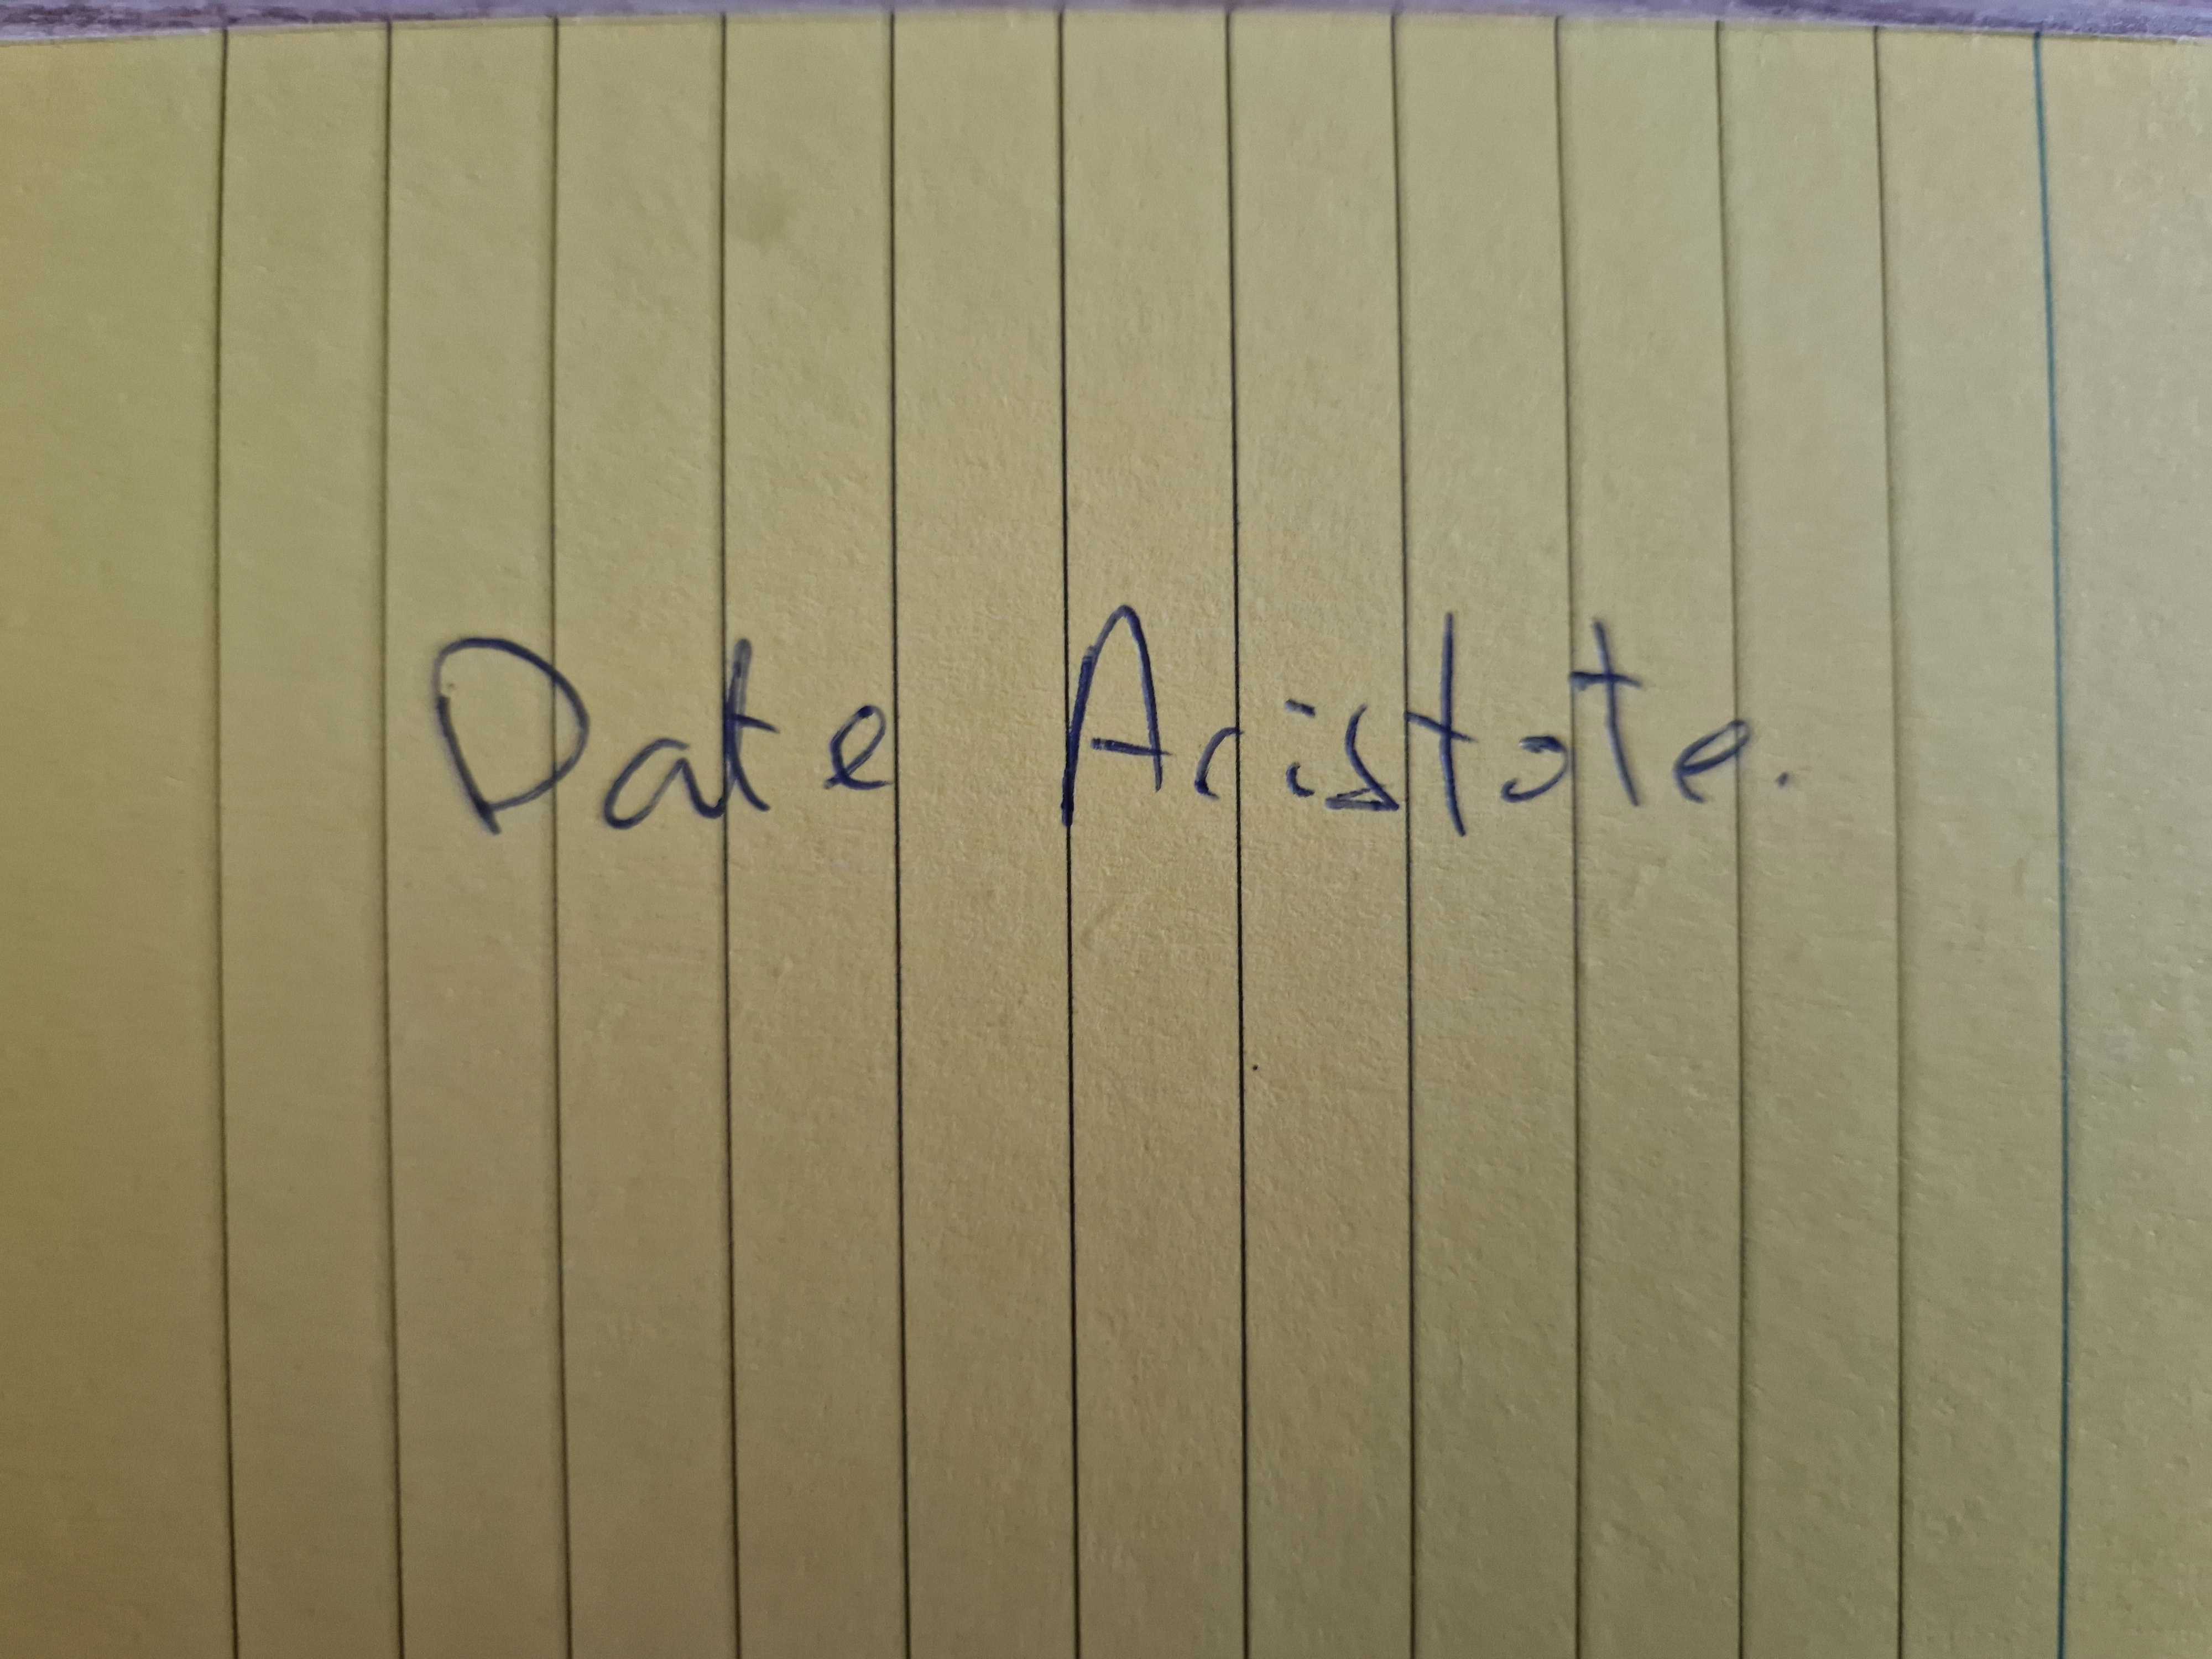 Date Aristote.